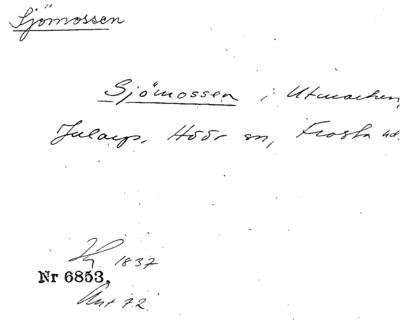 Sjömossen
Sjömossen i Utmarken,
Jularp, Höör sn, Frosta hd.
1837
Nr 6853,
Ant 72